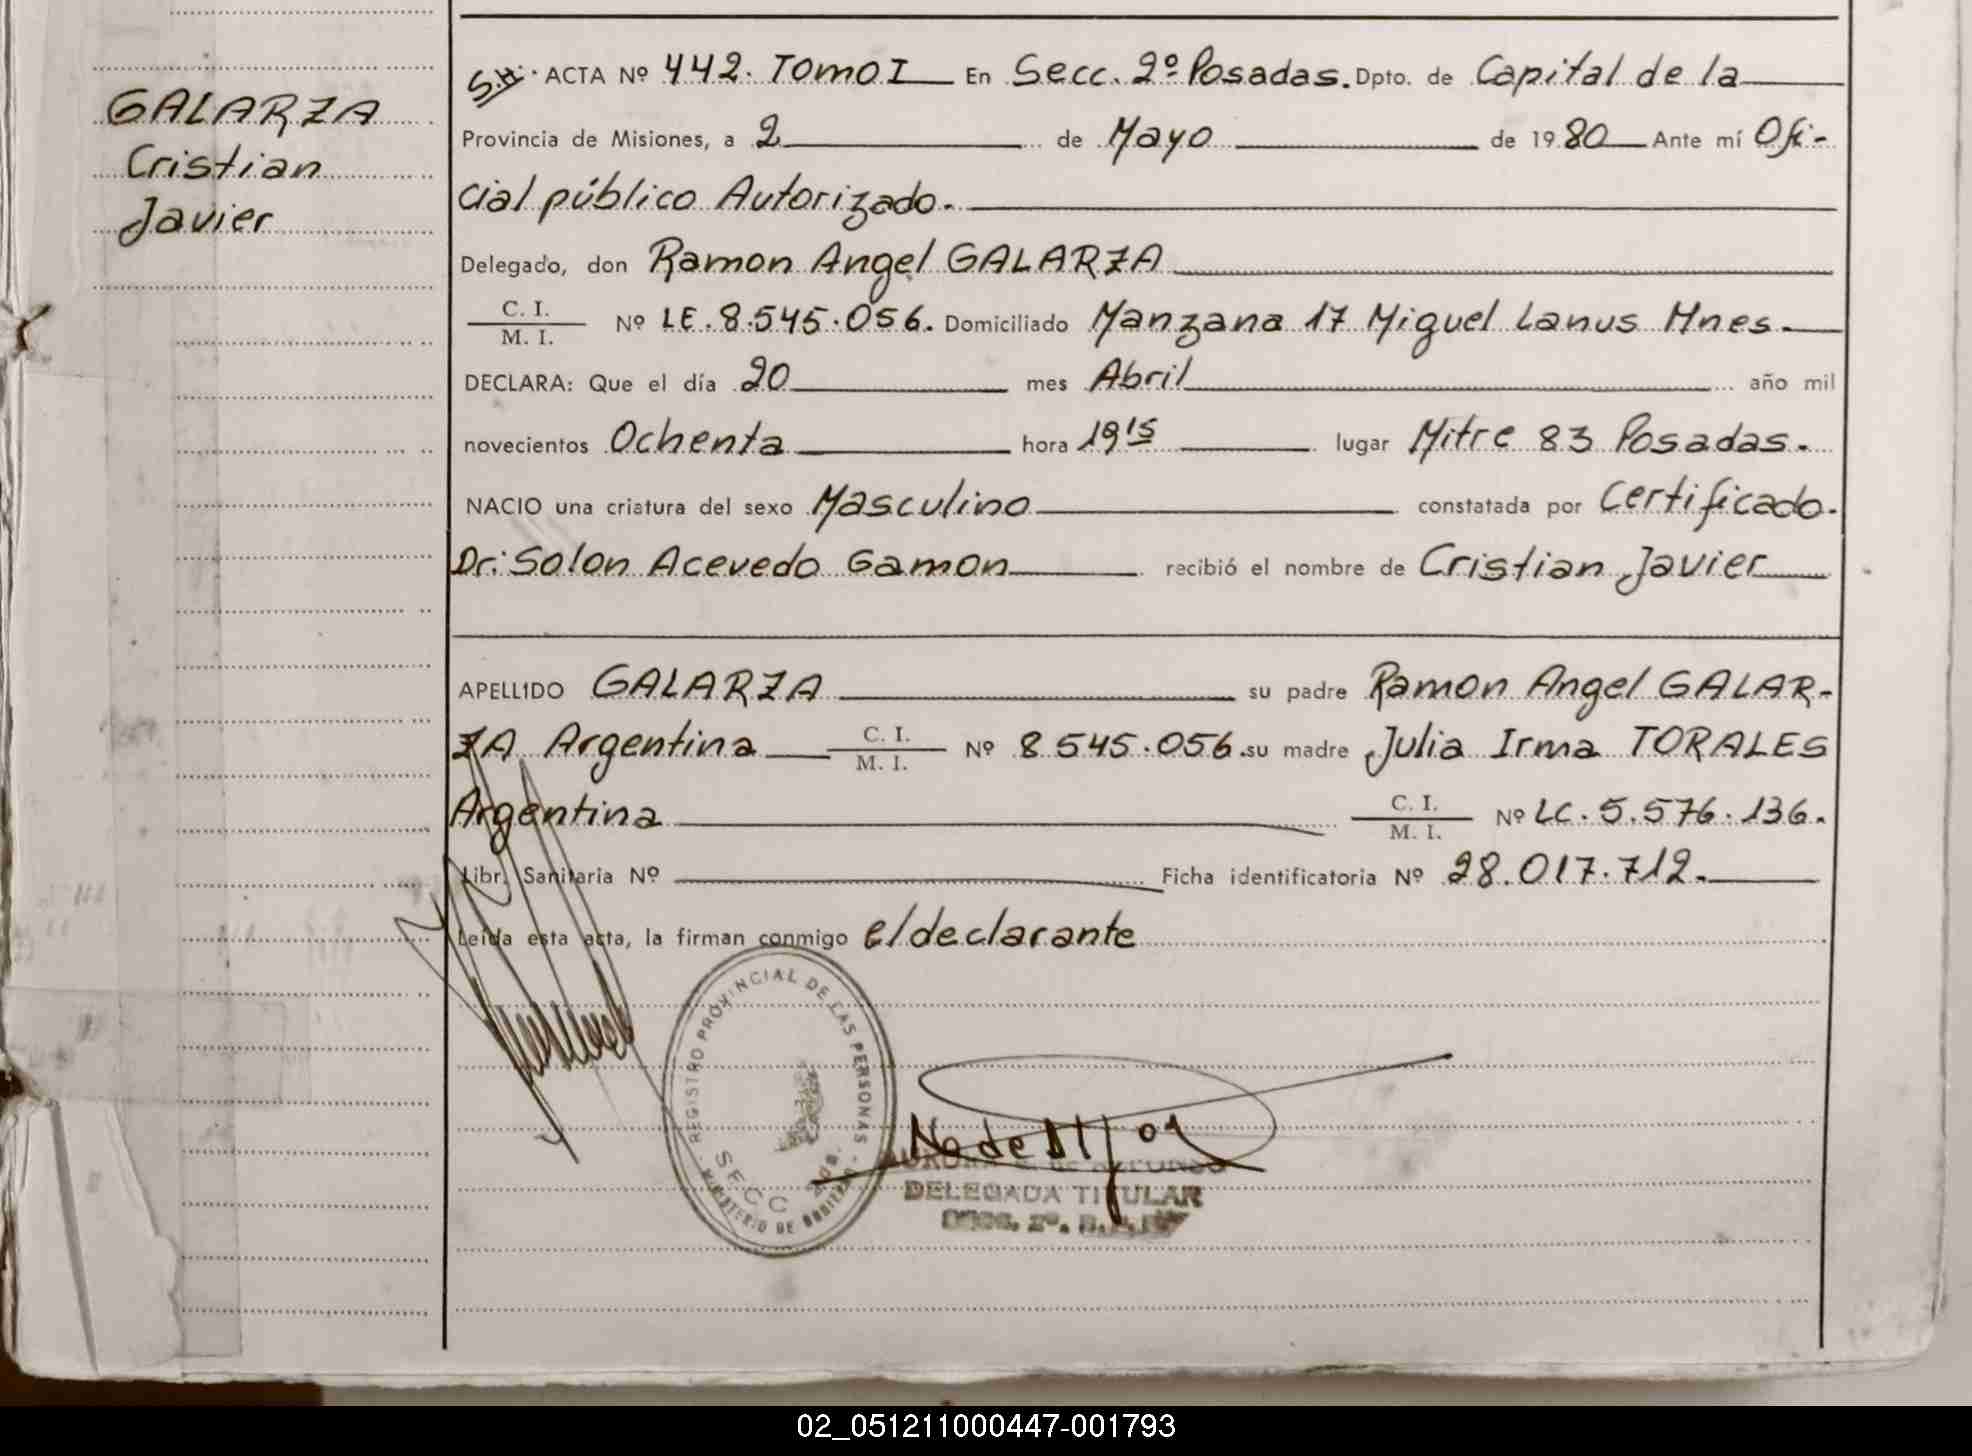 GALARZA
Cristian
Javier
S.H. ACTA Nº 442. TOMO I En Secc. 2º Posadas. Dpto. de Capital de la
Provincia de Misiones, a 2 de Mayo de 1980 Ante mí Ofi-
cial público Autorizado.
Delegado, don Ramon Angel GALARZA
C. I.
M. I. Nº LE. 8.545.056. Domiciliado Manzana 17 Miguel Lanus Mnes.
DECLARA: Que el día 20 mes Abril año mil
novecientos Ochenta hora 19 15 lugar Mitre 83 Posadas.
NACIO una criatura del sexo Masculino constatada por Certificado.
Dr: Solon Acevedo Gamon recibió el nombre de Cristian Javier
APELLIDO GALARZA su padre Ramon Angel GALAR-
ZA Argentina C. I. M. I. Nº 8 545.056. su madre Julia Irma TORALES
Argentina C. I. M. I. Nº LC. 5.576.136.
Libr. Sanitaria Nº Ficha identificatoria Nº 28.017.712.
Leída esta acta, la firman conmigo el declarante
REGISTRO PROVINCIAL DE LAS PERSONAS
SECC
MINISTERIO DE
DELEGADA TITULAR
02_051211000447-001793